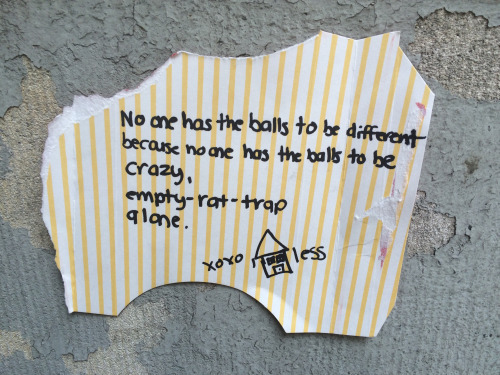 No one has the balls to be different
because no one has the balls to be
crazy,
empty-rat-trap
alone.
xoxo less